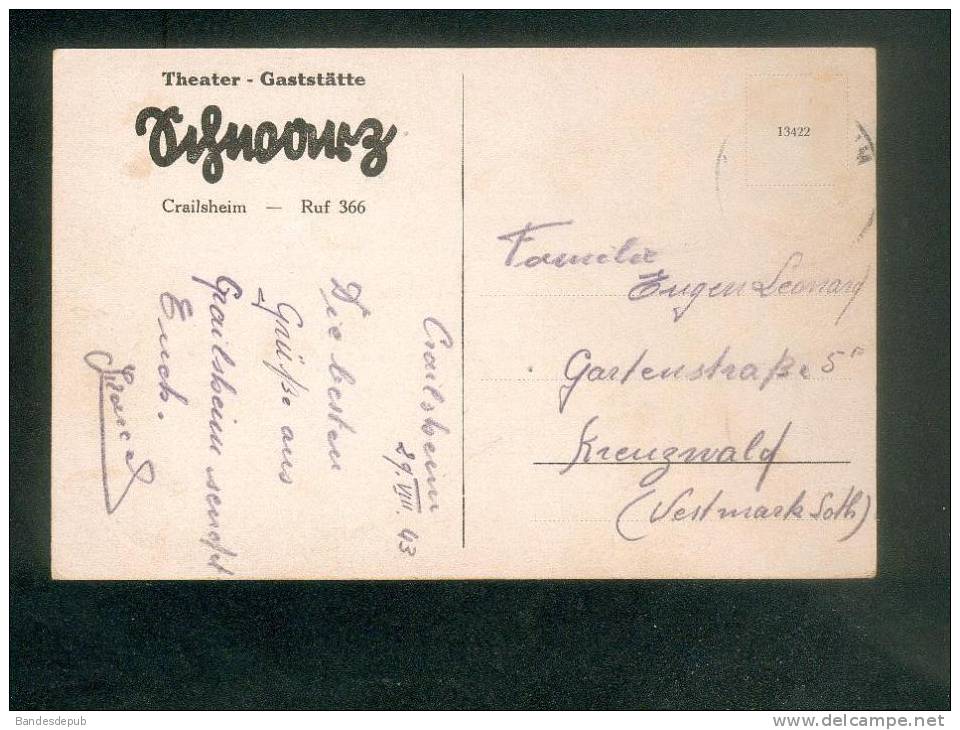 Theater - Gaststätte
Schwarz
Crailsheim — Ruf 366
13422
Crailsheim
29 VIII. 43
Die besten
Grüße aus
Crailsheim sendet
Euch.
Familie
Eugen Leonard
Gartenstraße 5
Kreuzwald
(Westmark Loth)
Bandesdepub
www.delcampe.net